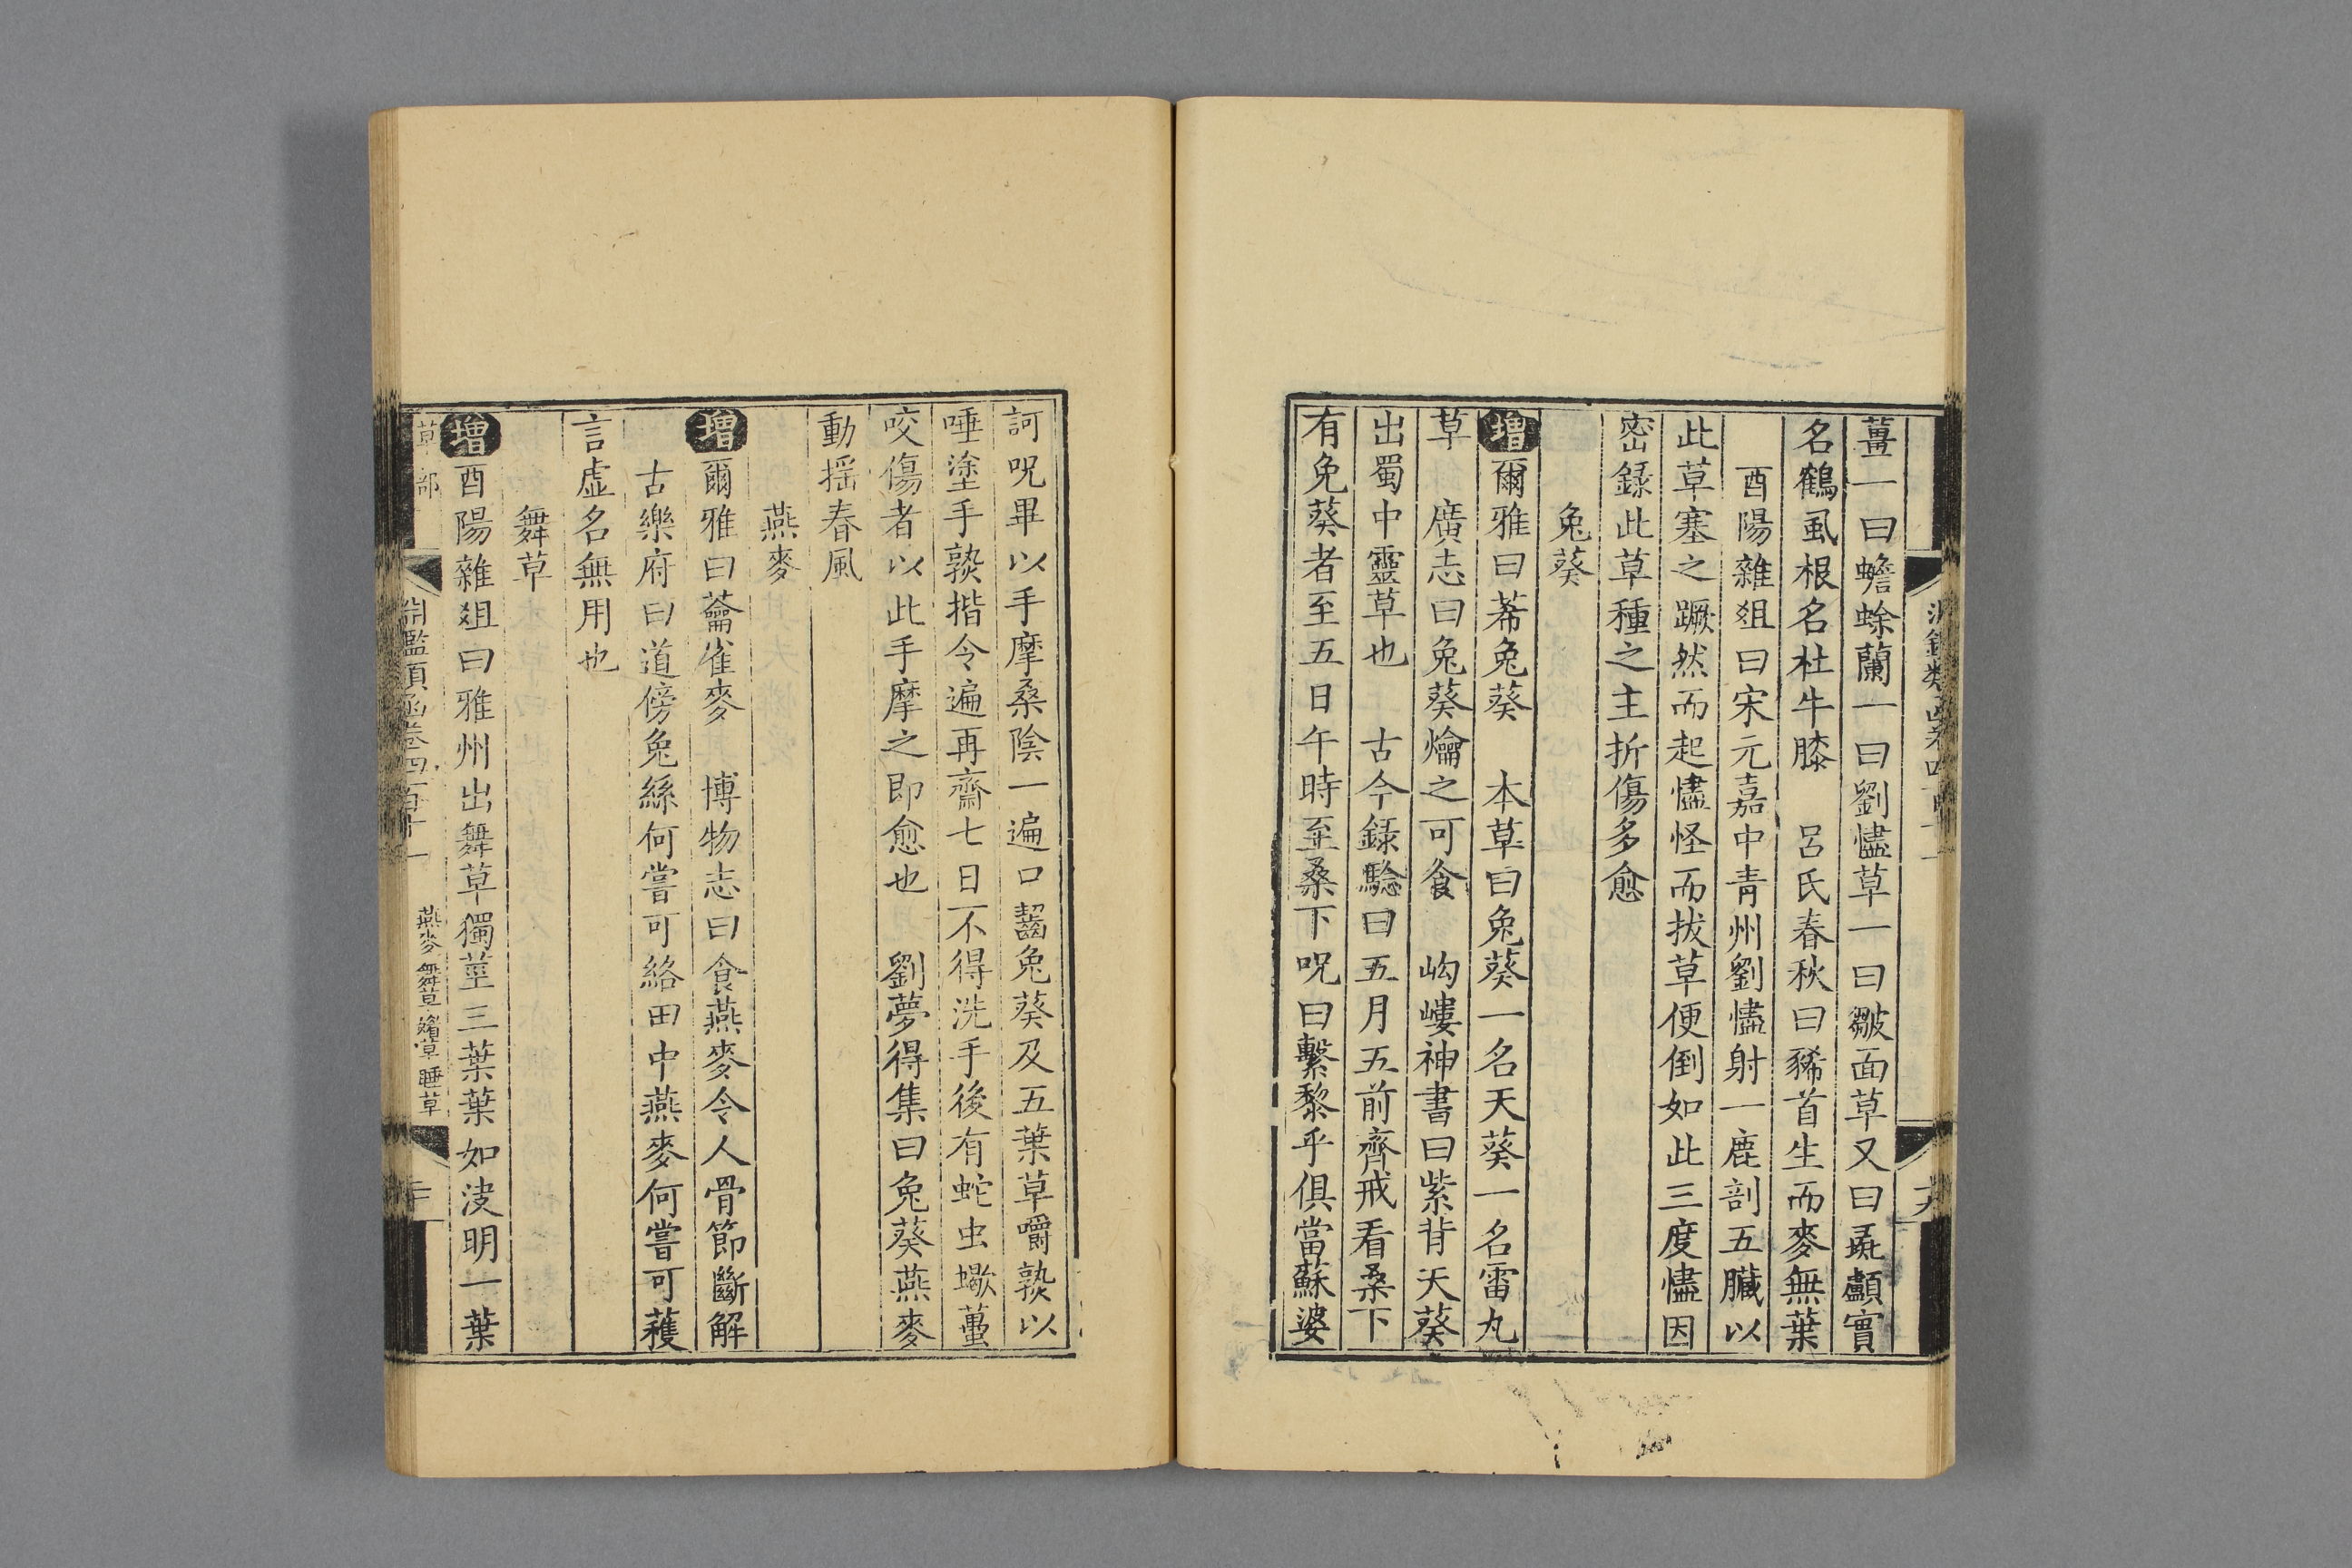 薑一曰蟾蜍蘭一曰劉㦤草一曰皺面草又曰彘顱實
名鶴虱根名杜牛膝　呂氏春秋曰豨首生而麥無葉
酉陽雜俎曰宋元嘉中青州劉㦤射一鹿剖五臟以
此草塞之蹶然而起㦤怪而拔草便倒如此三度㦤因
密錄此草種之主折傷多愈
兔葵
增爾雅曰莃兔葵　本草曰兔葵一名天葵一名雷丸
草　廣志曰兔葵爚之可食　岣嶁神書曰紫背天葵
出蜀中靈草也　古今錄驗曰五月五前齊戒看桑下
有兔葵者至五日午時至桑下呪曰繫黎乎俱當蘇婆
訶呪畢以手摩桑陰一遍口齧兔葵及五葉草嚼熟以
唾塗手熟揩令遍再齋七日不得洗手後有蛇虫蠍蠆
咬傷者以此手摩之即愈也　劉夢得集曰兔葵燕麥
動搖春風
燕麥
增爾雅曰蘥雀麥　博物志曰食燕麥令人骨節斷解
古樂府曰道傍兔絲何嘗可絡田中燕麥何嘗可穫
言虛名無用也
舞草
增酉陽雜俎曰雅州出舞草獨莖三葉葉如決明一葉
草部
淵鑑類函卷四百十一
燕麥 舞草 媚草 睡草
二十